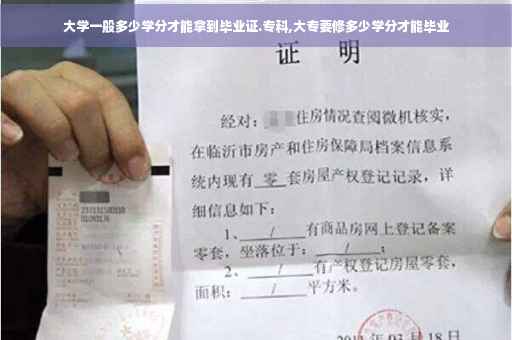 大学一般多少学分才能拿到毕业证.专科,大专要修多少学分才能毕业
证 明
经对: 住房情况查阅微机核实,
在临沂市房产和住房保障局档案信息系
统内现有 零 套房屋产权登记记录,详
细信息如下:
1、 / 有商品房网上登记备案
零套,坐落位于: / ;
2、 / 有产权登记房屋零套,
面积: / 平方米。
03月18日